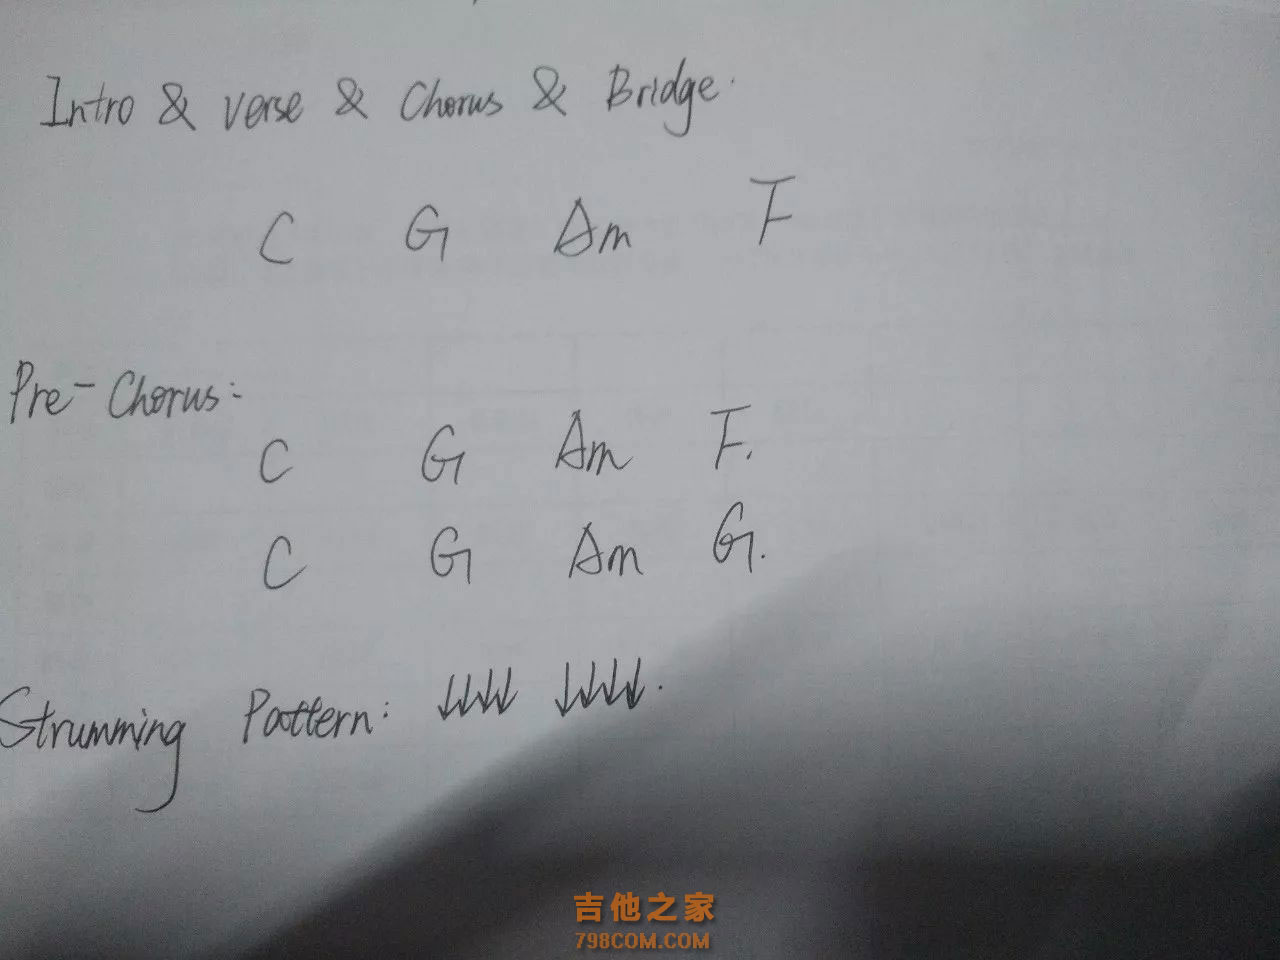 Intro & verse & Chorus & Bridge.
C G Am F
Pre-Chorus:
C G Am F.
C G Am G.
Strumming Pattern: ↓↓↓↓ ↓↓↓↓.
吉他之家
798COM.COM